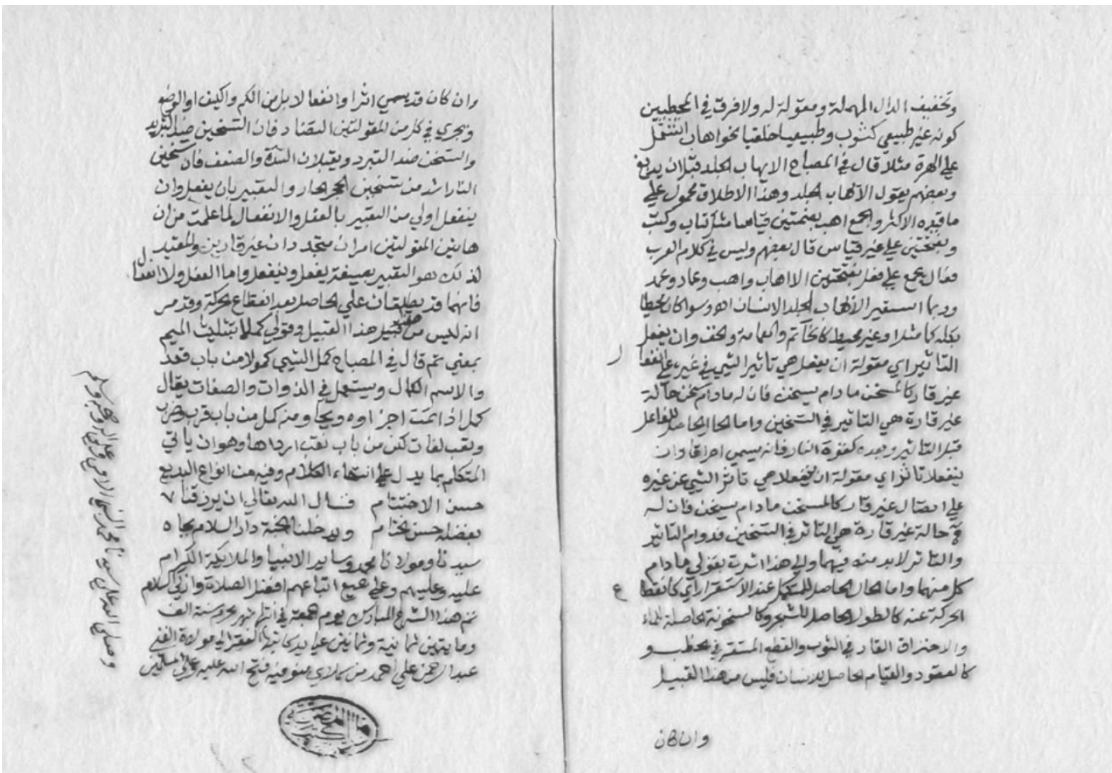 وتخفيف الدال المهملة ومعقولة له ولا فرق في المحيطين
كونه غير طبيعي كثوب وطبيعيا خلقيا نحو اهاب انتقل
على الهرة مثلا قال في المصباح الاهاب الجلد قبل ان يدبغ
وبعضهم يقول الاهاب الجلد وهذا الاطلاق محمول على
ما قيده الاكثر والجمع اهب بضمتين قياسا مثل كتاب وكتب
وبفتحتين على غير قياس قال بعضهم وليس في كلام العرب
فعال يجمع على فعل بفتحتين الا اهاب واهب وعماد وعمد
وربما استعير الاهاب لجلد الانسان اهـ وسوا كان محيطا
بكله كما مثلا او غير محيط كالخاتم والعمامة والخف وان يفعل
التاثير اي مقولة ان يفعل هي تاثير الشيء في غيره على اتصال
غير قار كالمسخن ما دام يسخن فان له ما دام يسخن حالة
غير قارة هي التاثير في التسخين واما الحال الحاصل للفاعل
قبل التاثير وبعده كقوة النار فانه يسمى احراقا وان
ينفعل تاثرا اي مقولة ان ينفعل هي تاثر الشيء عن غيره
على اتصال غير قار كالمتسخن ما دام يتسخن فان له
حالة غير قارة هي التاثر في التسخين فدوام التاثير
والتاثر لابد منه فيهما والى هذا اشرت بقولي ما دام
كل منهما واما الحال الحاصل للمستكمل عند الاستقرار اي انقطاع
الحركة عنه كالطول الحاصل للشجر وكالسخونة الحاصلة للماء
والاحتراق القار في الثوب والقطع المستقر في الحطب و
كالقعود والقيام الحاصل للانسان فليس من هذا القبيل
وان كان
وان كان قد يسمى اثرا وانفعالا بل من الكم والكيف او الوضع
ويجري في كل من المقولتين التضاد فان التسخين ضد التبريد
والتسخن ضد التبرد ويقبلان الشدة والضعف فان تسخين
النار اشد من تسخين الحجر الحار والتعبير بان يفعل وان
ينفعل اولى من التعبير بالفعل والانفعال لما علمت من ان
هاتين المقولتين امران متجددان غير قارين والمفيد
لذلك هو التعبير بصيغة يفعل وينفعل واما الفعل والانفعال
فانهما قد يطلقان على الحاصل بعد انقطاع الحركة وقد مر
انه ليس من هذا القبيل وقولي كملا بتثليث الميم
بمعنى تم قال في المصباح كمل الشيء كمولا من باب قعد
والاسم الكمال ويستعمل في الذوات والصفات يقال
كمل اذا تمت اجزاوه وكمل من باب قرب وضرب
وتعب لغات لكن من باب تعب ارداها وهو ان ياتي
المتكلم بما يدل على انتهاء الكلام وفيه من انواع البديع
حسن الاختتام نسال الله تعالى ان يرزقنا
بفضله حسن الختام ويدخلنا الجنة دار السلام بجاه
سيدنا ومولانا محمد وساير الانبيا والملايكة الكرام
عليه وعليهم وعلى جميع اتباعهم افضل الصلاة وازكى سلام
تم هذا الشرح المبارك يوم الجمعة في شهر سنة الف
وما يتين ثمانية وثمانين على يد كاتبه الفقير الى مولاه الغني
عبد الرحمن علي احمد من منوفية فتح الله عليه وعلى المسلمين
وصلى الله على سيدنا محمد النبي الامي وعلى اله وصحبه وسلم